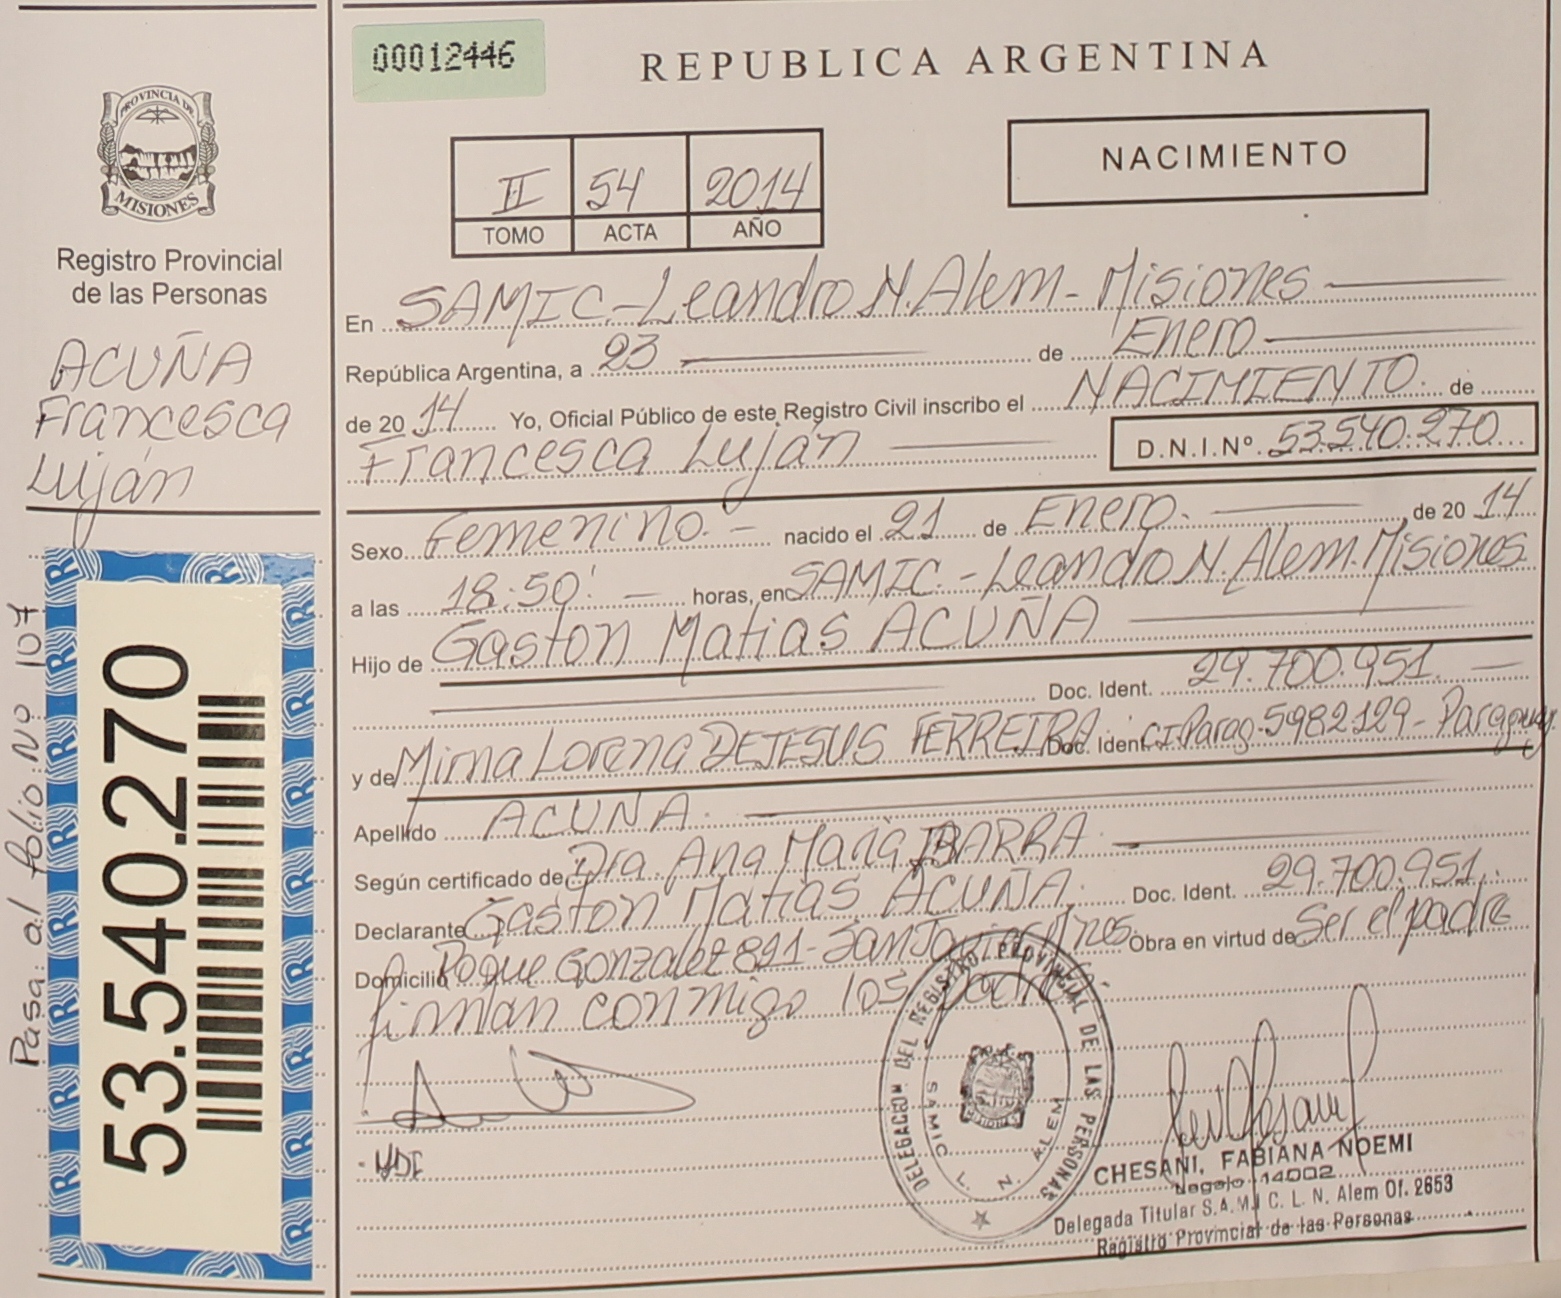 00012446
REPUBLICA ARGENTINA
PROVINCIA DE
MISIONES
II 54 2014
TOMO ACTA AÑO
NACIMIENTO
Registro Provincial
de las Personas
ACUÑA
Francesca
Luján
En SAMIC-Leandro N. Alem- Misiones
República Argentina, a 23 de Enero
de 20 14 Yo, Oficial Público de este Registro Civil inscribo el NACIMIENTO de
Francesca Luján D.N.I.Nº 53.540.270
Sexo Femenino.- nacido el 21 de Enero. de 20 14
a las 18:50' horas, en SAMIC.-Leandro N. Alem.Misiones
Hijo de Gaston Matias ACUÑA
Doc. Ident. 29.700.951.
y de Mirna Lorena DEJESUS FERREIRA Doc. Ident. C.I. Parag. 5982129- Paraguay.
Apellido ACUÑA.
Según certificado de Dra. Ana María IBARRA
Declarante Gaston Matias ACUÑA. Doc. Ident. 29.700.951.
Domicilio Roque Gonzalez 891- San Javier Mnes. Obra en virtud de Ser el padre
firman conmigo los padres.-
MDF
DELEGACION DEL REGISTRO PROVINCIAL DE LAS PERSONAS
SAMIC L. N. ALEM
CHESANI, FABIANA NOEMI
Legajo 14002
Delegada Titular S.A.M.I C. L. N. Alem Of. 2653
Registro Provincial de las Personas
Pasa al folio Nº 107
53.540.270